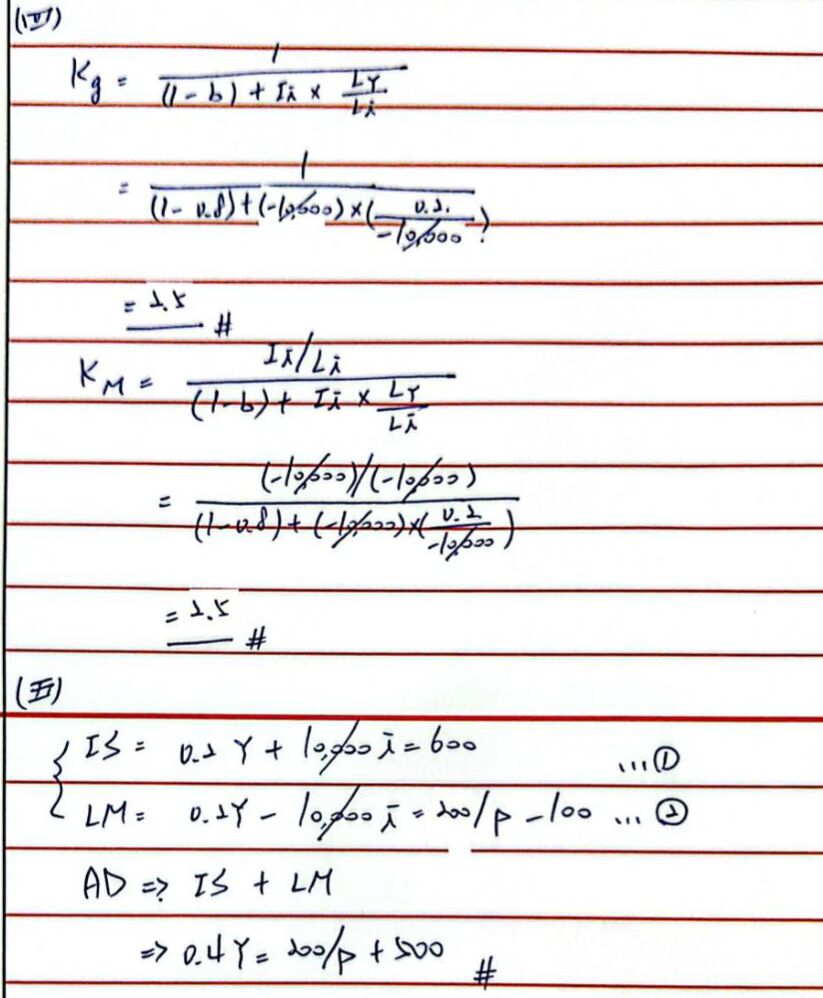 (四)
Kg = 1 / ((1-b) + Ii × LY/Li)
= 1 / ((1-0.8) + (-10,000) × (0.2/-10,000))
= 2.5 #
KM = (Ii/Li) / ((1-b) + Ii × LY/Li)
= (-10,000)/(-10,000) / ((1-0.8) + (-10,000) × (0.2/-10,000))
= 2.5 #
(五)
{ IS = 0.2Y + 10,000i = 600 ...①
LM = 0.2Y - 10,000i = 200/P - 100 ...②
AD => IS + LM
=> 0.4Y = 200/P + 500 #